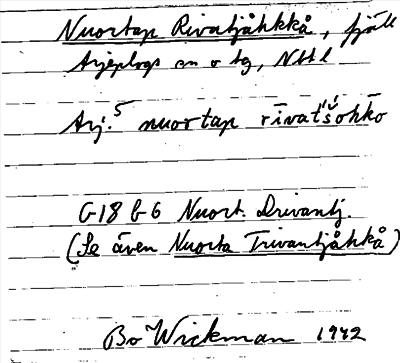 Nuortap Rivatjåhkkå, fjäll
Arjeplogs sn o tg, Nbtl
Arj.5 nuortap rīvatšohko
G18 b G Nuort. Drivantj.
(Se även Nuorta Trivantjåhkå)
Bo Wickman 1942